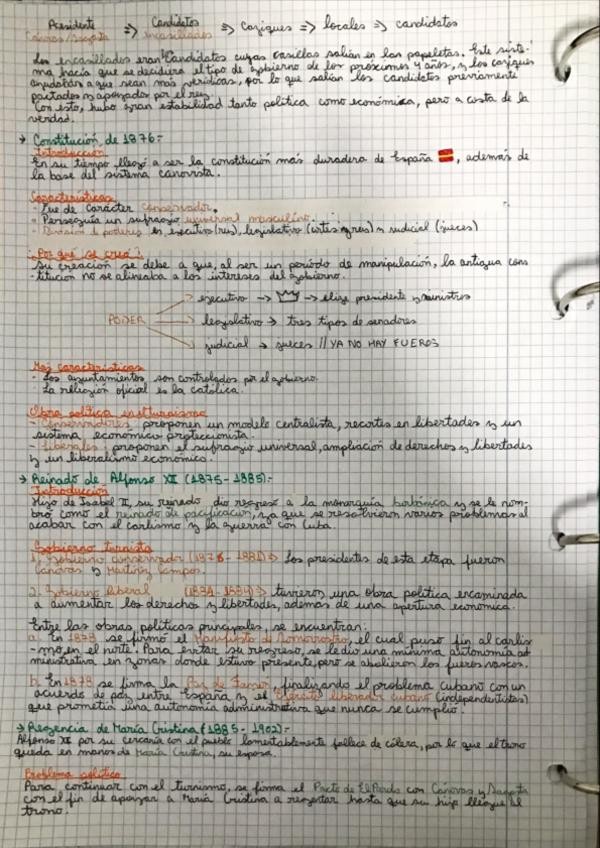 Presidente => Candidatos => Caziques => locales => candidatos
Cánovas/Sagasta encasillados
Los encasillados eran Candidatos cuyas casillas salían en las papeletas. Este siste-
ma hacía que se decidiera el tipo de gobierno de los proximos 4 años, y los caziques
ayudaban a que sean más verídicas, por lo que salían los candidatos previamente
pactados y apoyados por el rey.
Con esto, hubo gran estabilidad tanto política como económica, pero a costa de la
verdad.
→ Constitución de 1876:-
Introducción
En su tiempo llegó a ser la constitución más duradera de España 🇪🇸, además de
la base del sistema canovista.
Características
- Fue de carácter conservador.
- Perseguía un sufragio universal masculino.
- División de poderes en, executivo (rey), legislativo (cortes y rey) y judicial (jueces)
¿Por qué se creó?
Su creación se debe a que, al ser un periodo de manipulación, la antigua cons
-titución no se alineaba a los intereses del gobierno.
executivo → → elige presidente y ministros
PODER legislativo → tres tipos de senadores
judicial → jueces // YA NO HAY FUEROS
Más características
- Los ayuntamientos son controlados por el gobierno.
- La religión oficial es la católica.
Obra política en el turnismo
- Conservadores: proponen un modelo centralista, recortes en libertades y un
sistema económico proteccionista.
- Liberales: proponen el sufragio universal, ampliación de derechos y libertades
y un liberalismo económico.
→ Reinado de Alfonso XII (1875-1885):-
Introducción
Hijo de Isabel II, su reinado dio regreso a la monarquía borbónica y se le nom-
bró como el reinado de pacificación, ya que se resolvieron varios problemas al
acabar con el carlismo y la guerra con Cuba.
Gobierno turnista
1. Gobierno conservador (1876-1881) => Los presidentes de esta etapa fueron
Cánovas y Martínez Campos.
2. Gobierno liberal (1881-1884) => tuvieron una obra política encaminada
a aumentar los derechos y libertades, ademas de una apertura económica.
Entre las obras políticas principales, se encuentran:
a. En 1878 se firmó el Manifiesto de Somorrostro, el cual puso fin al carlis
-mo, en el norte. Para evitar su regreso, se le dio una mínima autonomía ad
ministrativa en zonas donde estuvo presente, pero se abolieron los fueros vascos.
b. En 1878 se firma la Paz de Zanjón, finalizando el problema cubano con un
acuerdo de paz entre España y el Ejército liberador cubano (independentistas)
que prometía una autonomía administrativa que nunca se cumplió.
→ Regencia de María Cristina (1885-1902):-
Alfonso XII por su cercanía con el pueblo lamentablemente fallece de cólera, por lo que el trono
queda en manos de María Cristina, su esposa.
Problema político
Para continuar con el turnismo, se firma el Pacto de El Pardo con Cánovas y Sagasta
con el fin de apoyar a María Cristina a regentar hasta que su hijo llegue al
trono.